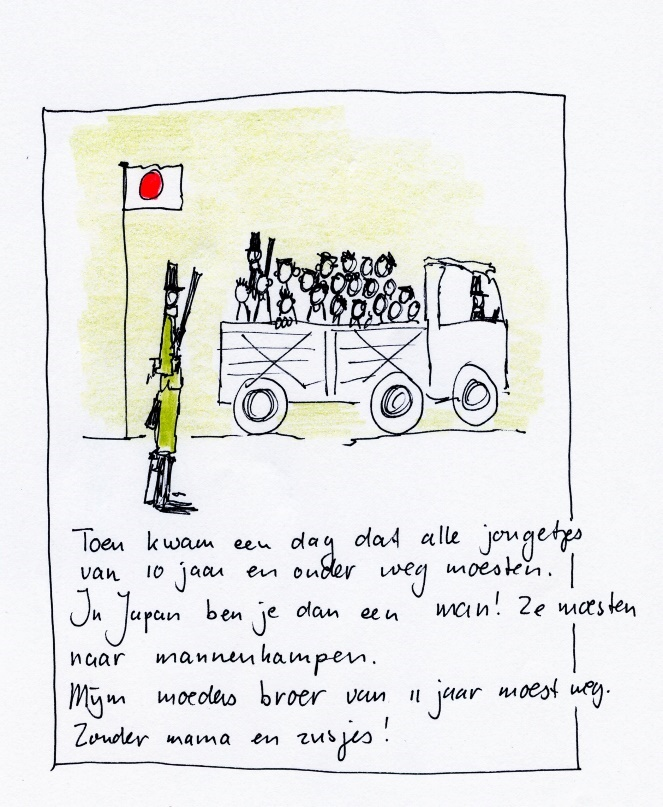 Toen kwam een dag dat alle jongetjes
van 10 jaar en ouder weg moesten.
In Japan ben je dan een man! Ze moesten
naar mannenkampen.
Mijm moeders broer van 11 jaar moest weg.
Zonder mama en zusjes!